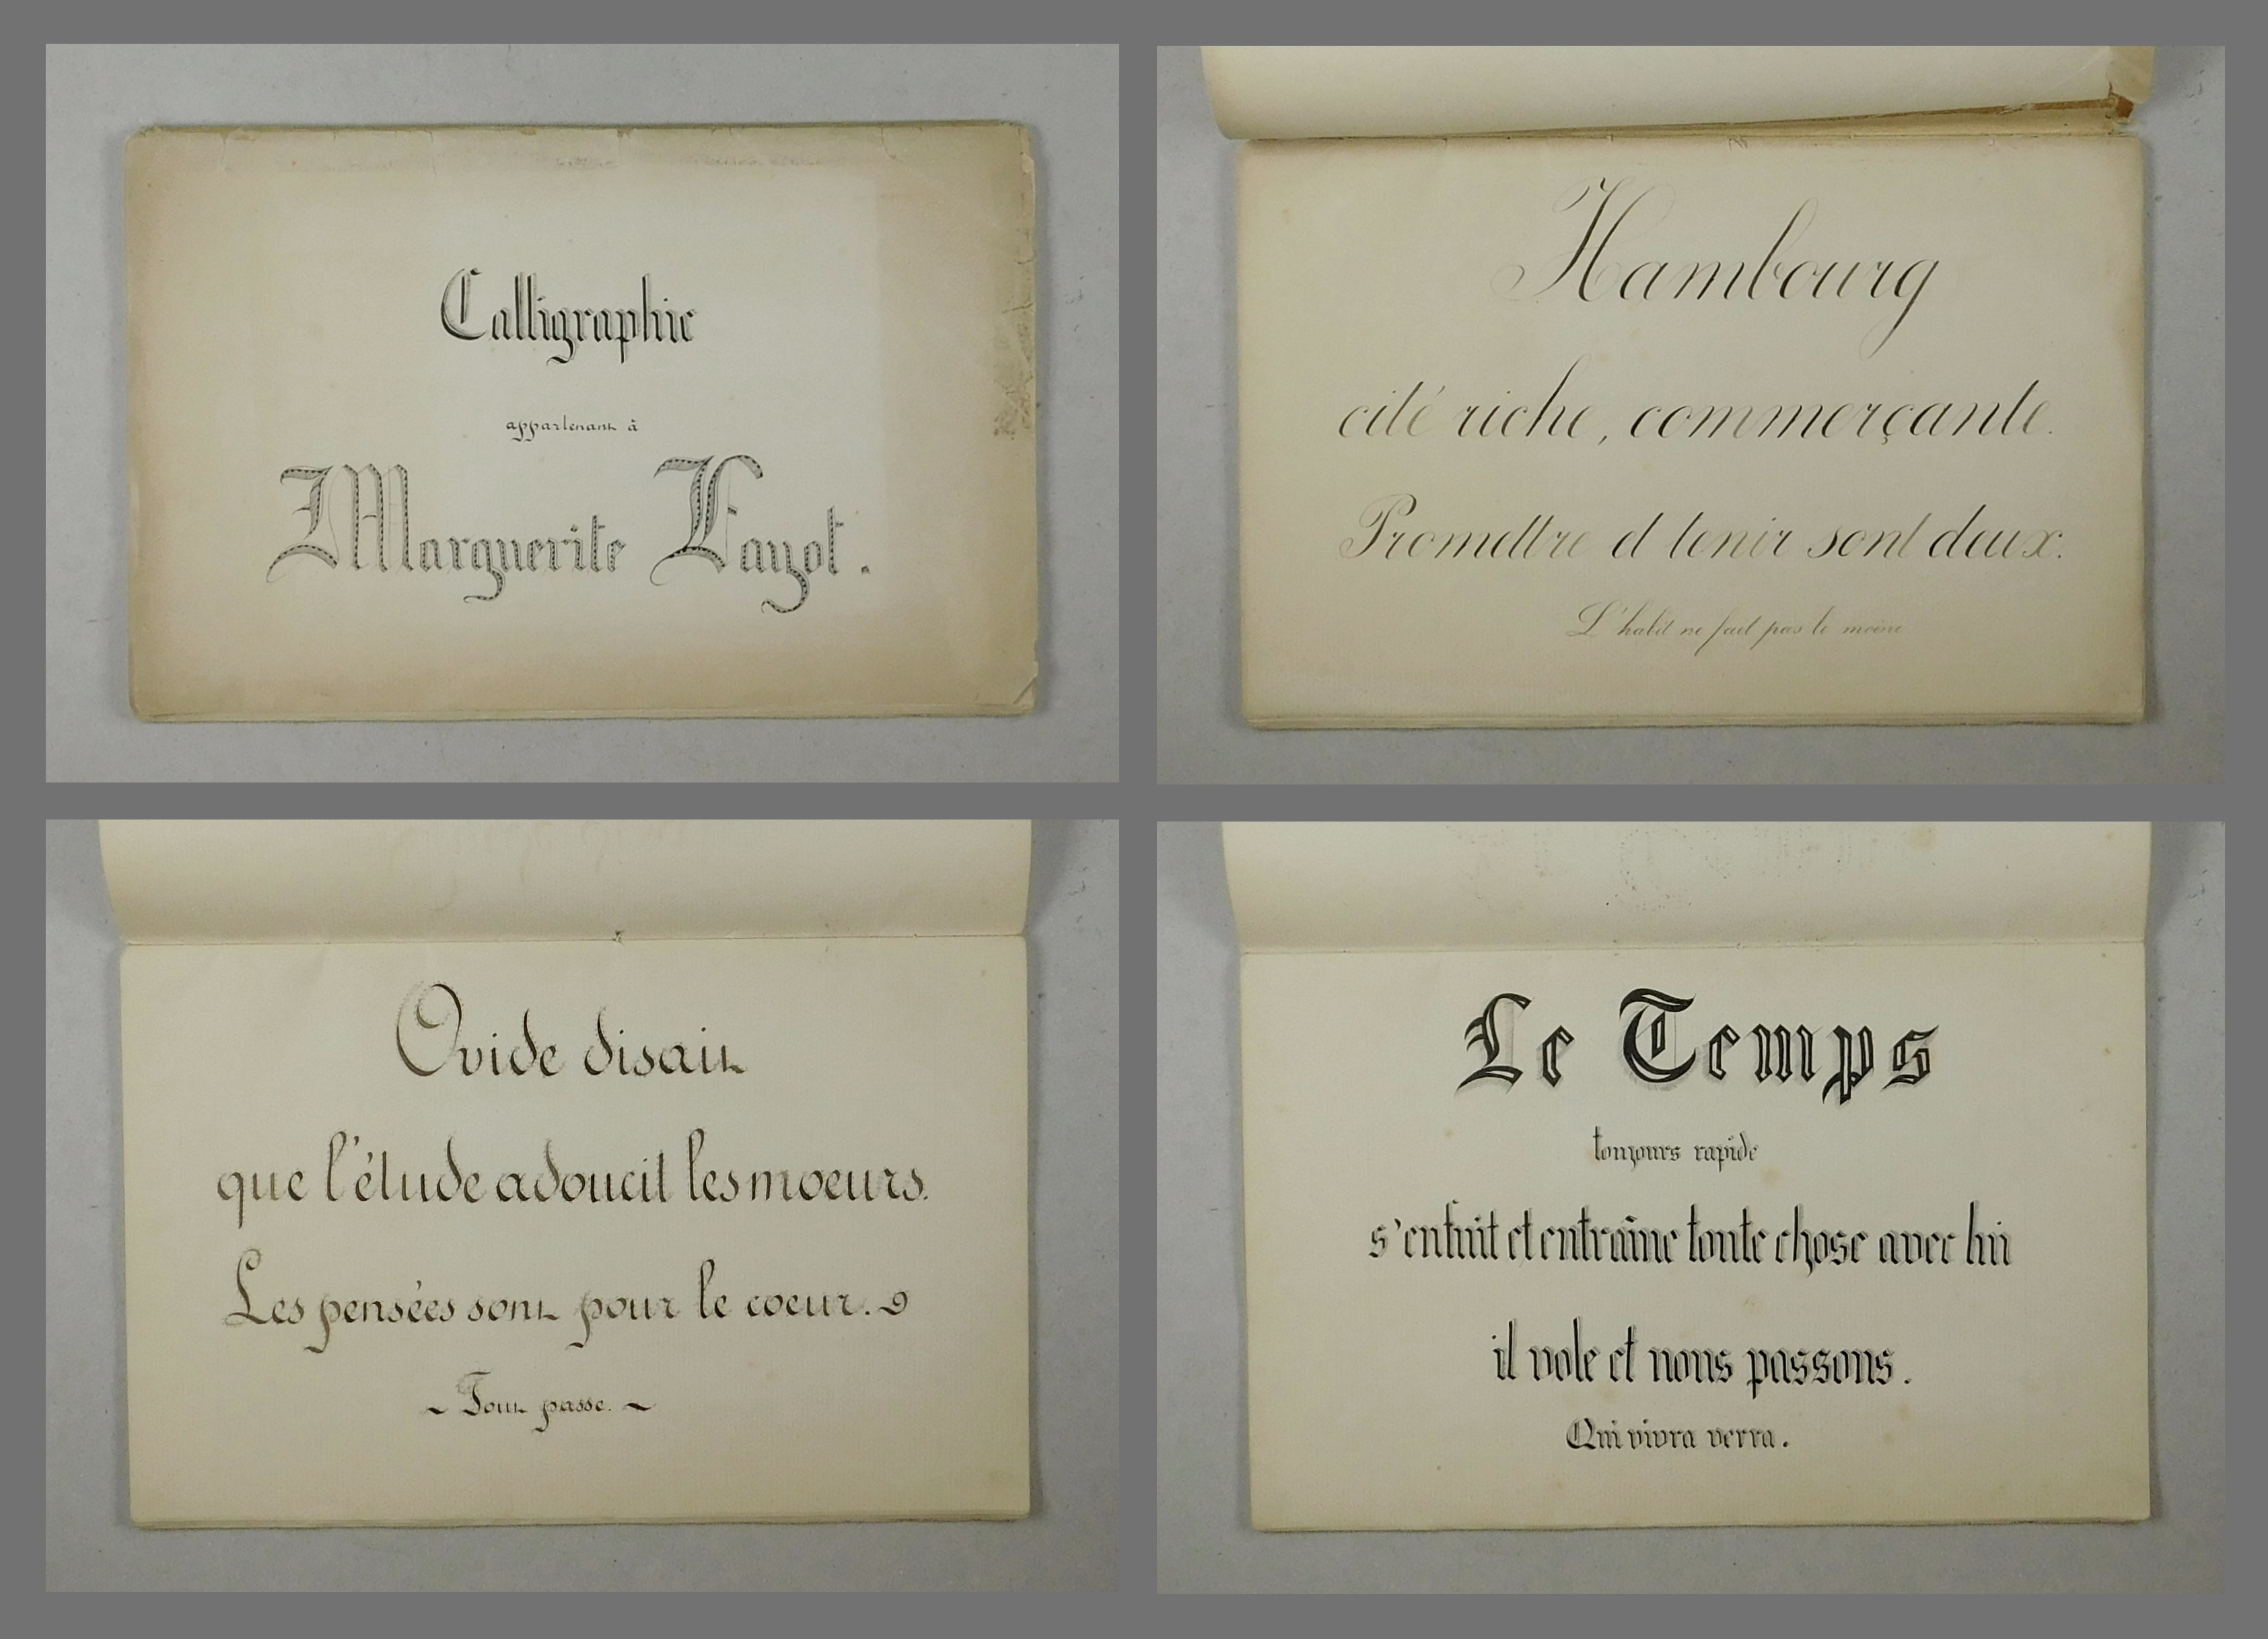 Calligraphie
appartenant à
Marguerite Fayot.
Hambourg
cité riche, commerçante.
Promettre et tenir sont deux.
L'habit ne fait pas le moine
Ovide disait
que l'étude adoucit les moeurs.
Les pensées sont pour le coeur.
~ Tout passe. ~
Le Temps
toujours rapide
s'enfuit et entraîne toute chose avec lui
il vole et nous passons.
Qui vivra verra.